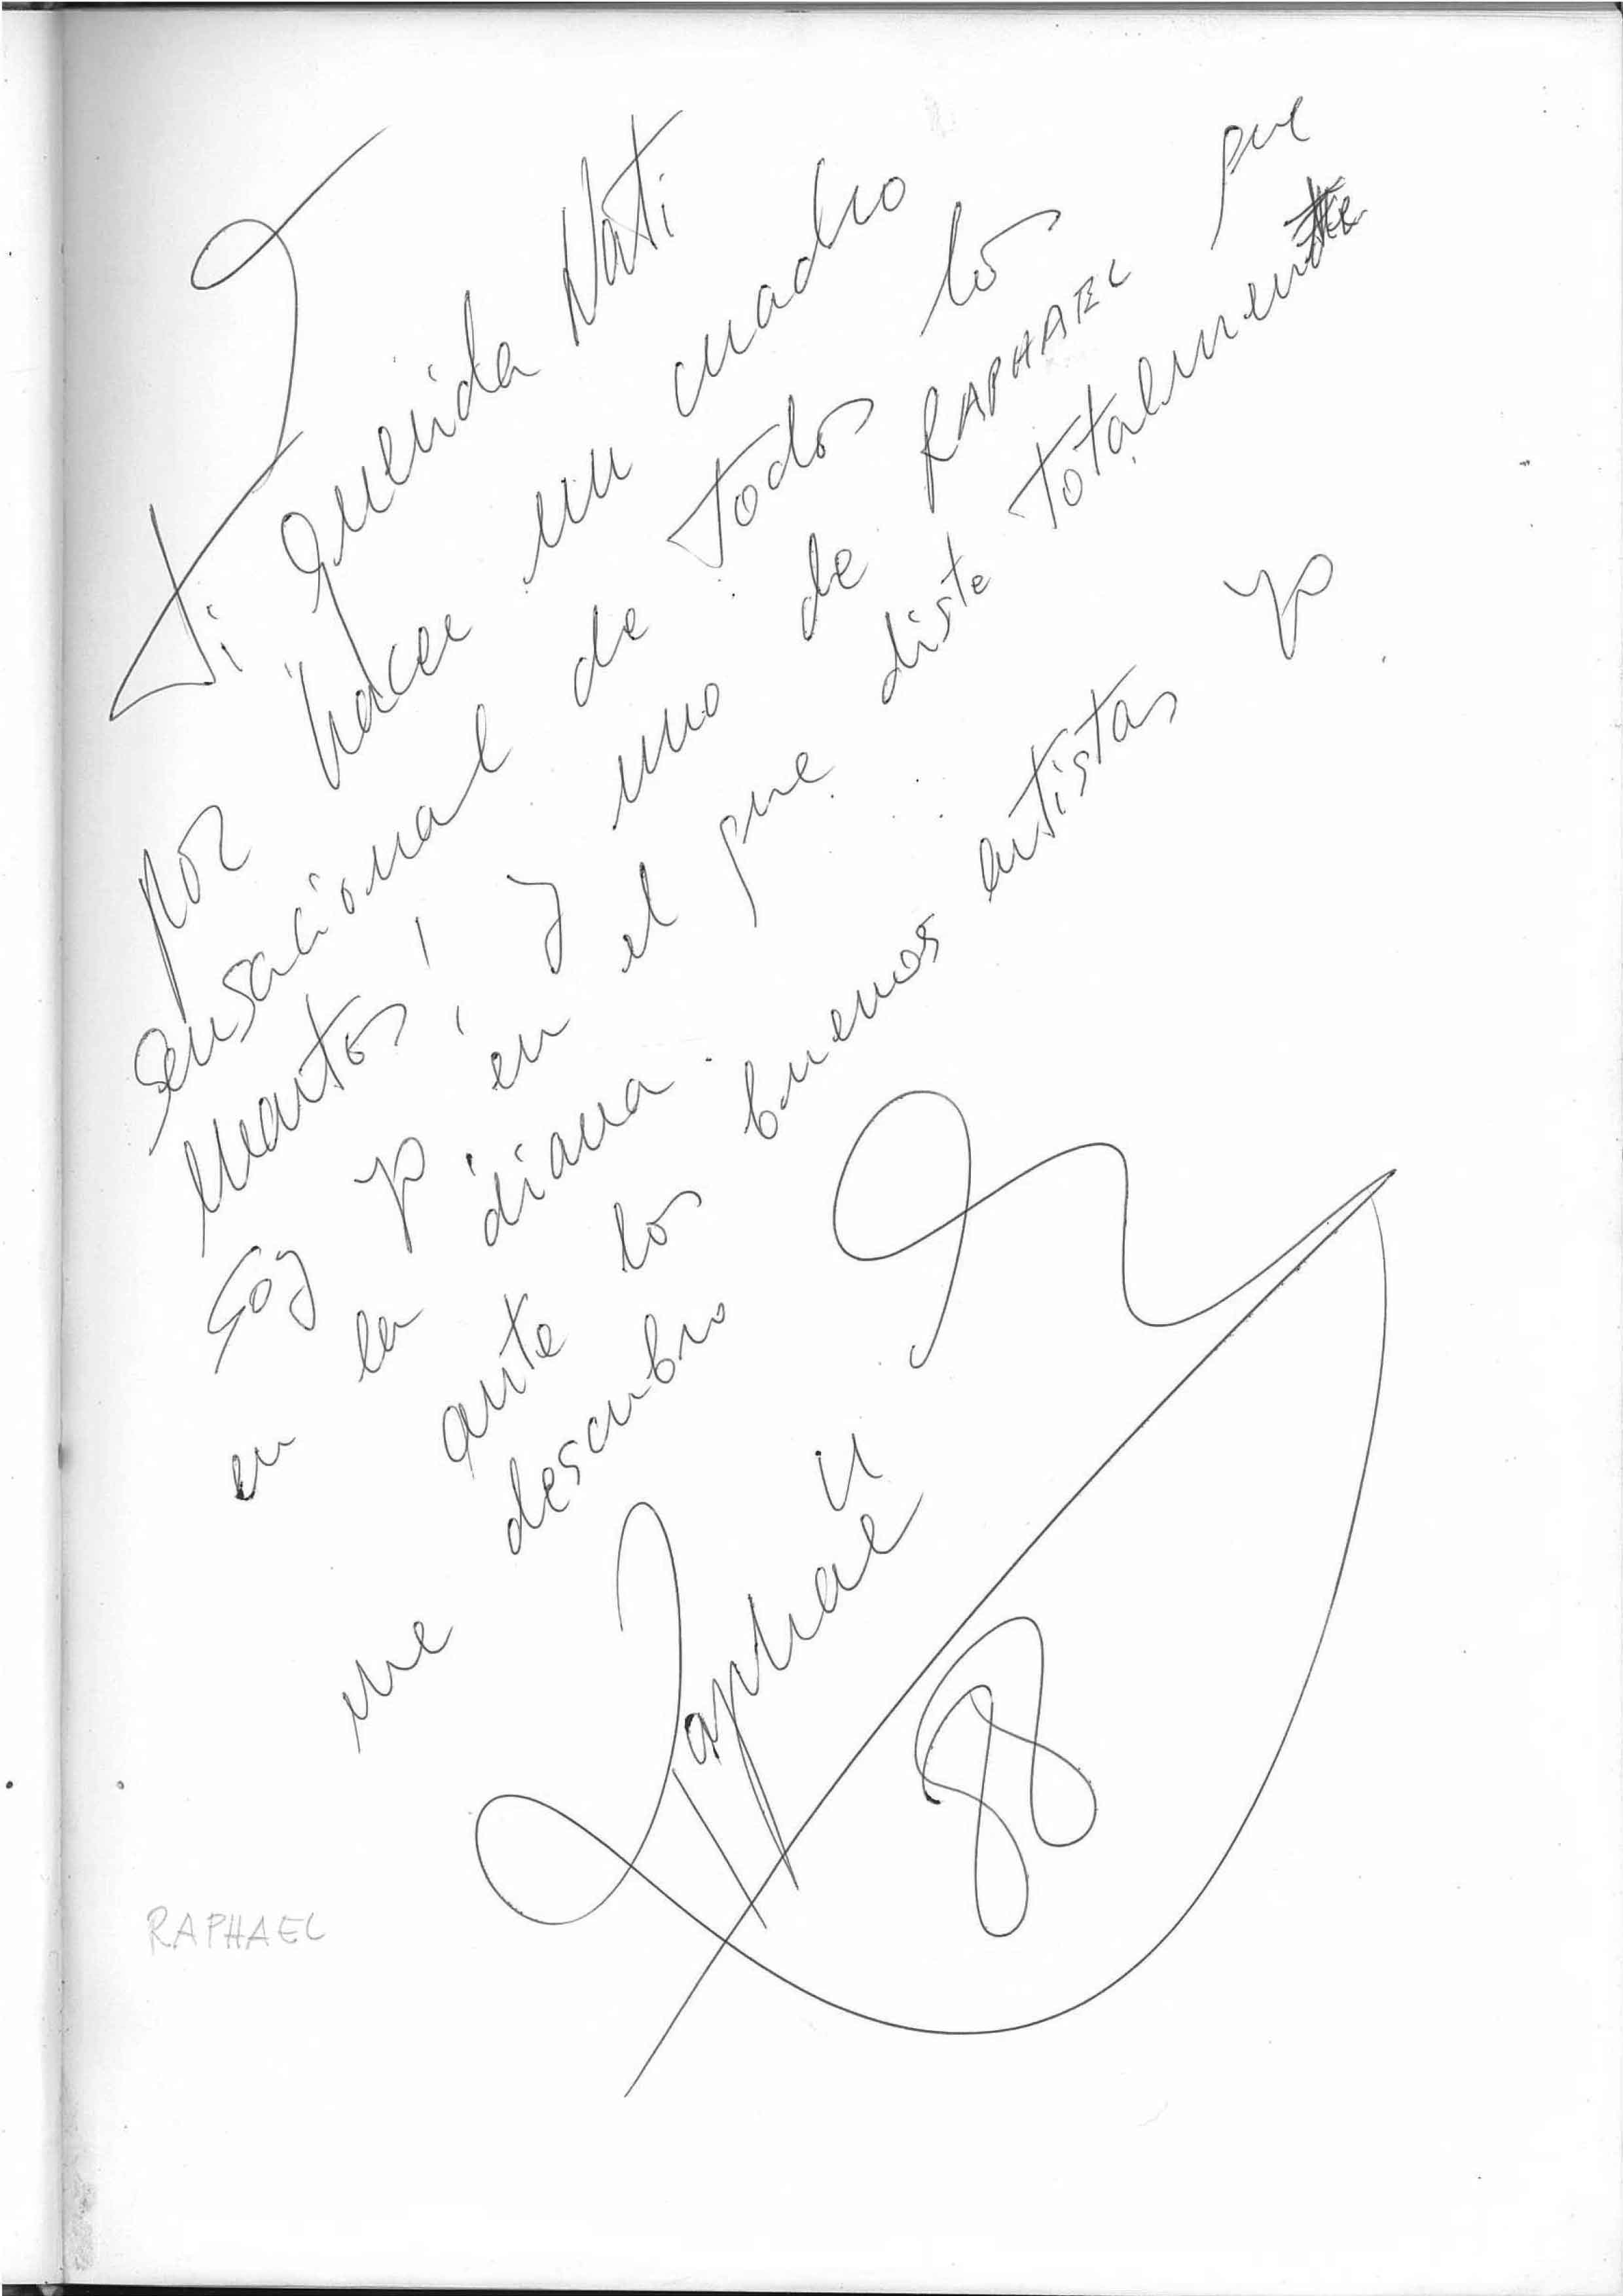 Ti querida Nati
por hacer un cuadro
sensacional de todos los
martes, y uno de RAPHAEL que
soy yo en el que diste totalmente
en la diana.
ante los buenos artistas yo
me descubro
Raphael
88
RAPHAEL